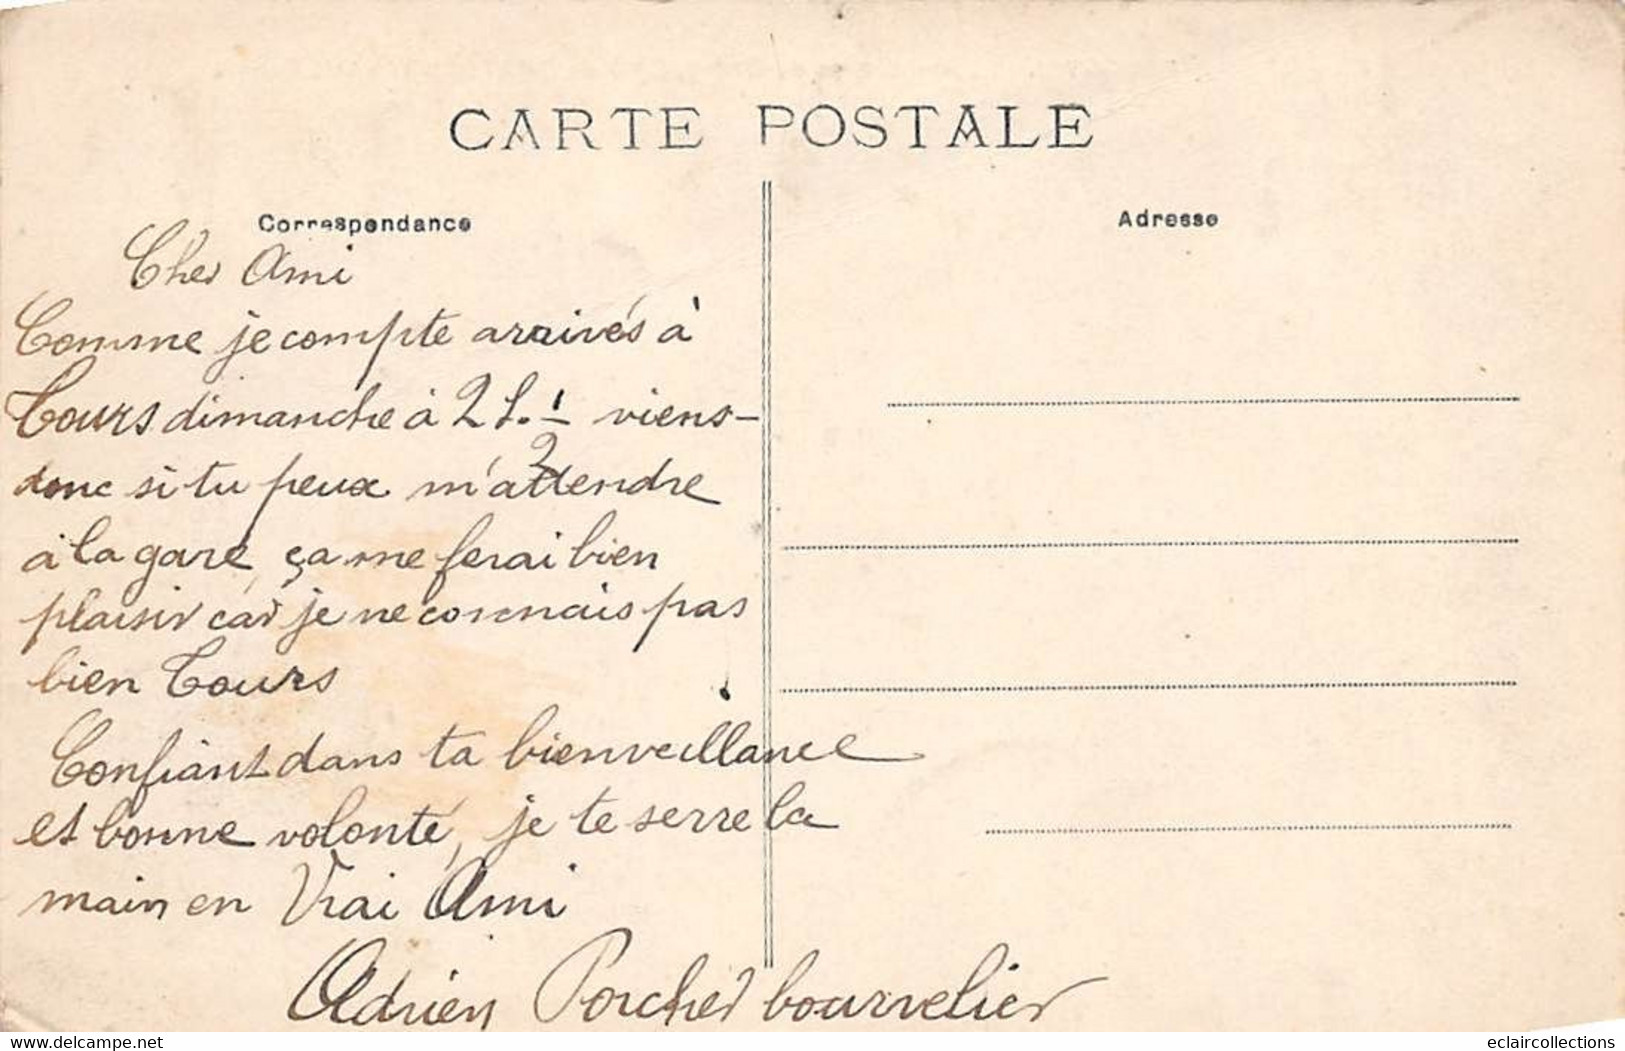 CARTE POSTALE
Correspondance
Adresse
Cher Ami
Comme je compte arrivés à
Tours dimanche à 2 h. 1/2 viens-
donc si tu peux m'attendre
à la gare, ça me ferai bien
plaisir car je ne connais pas
bien Tours
Confiant dans ta bienveillance
et bonne volonté, je te serre la
main en Vrai Ami
Adrien Porcher bourrelier
www.delcampe.net
eclaircollections